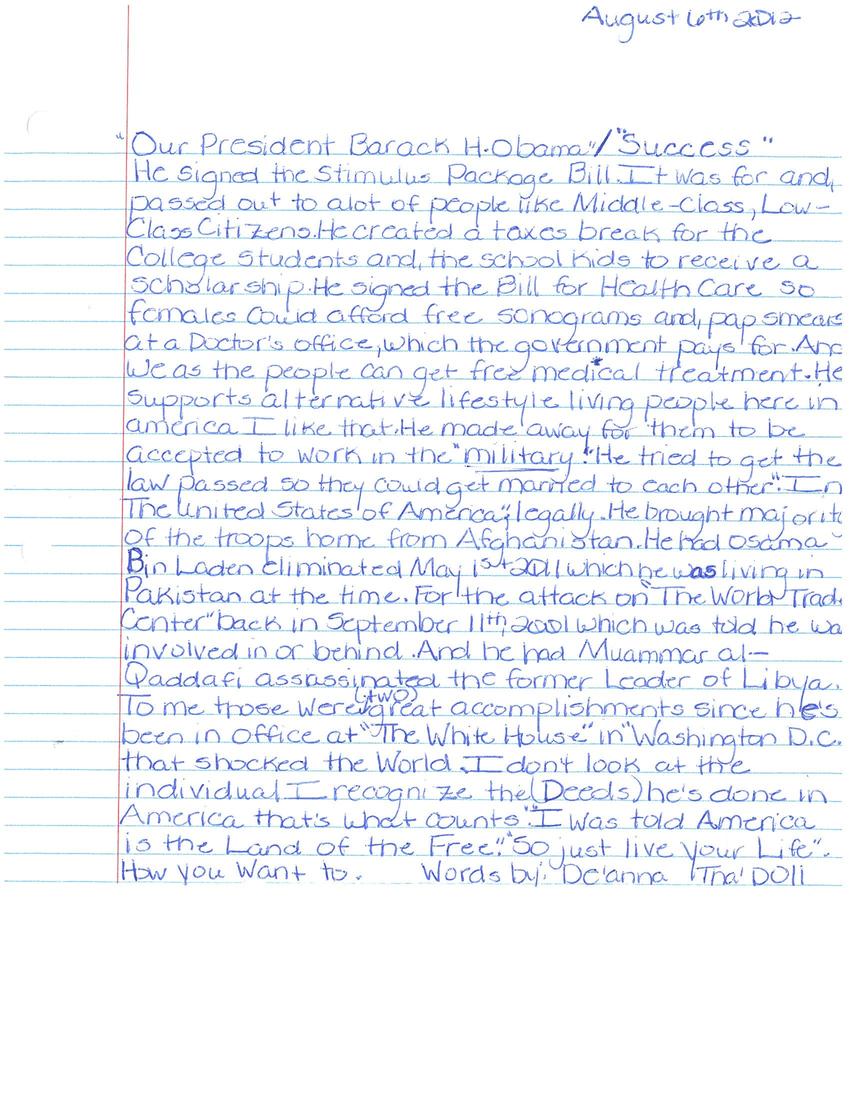 August 10th 2012
"Our President Barack H. Obama"/"Success"
He signed the Stimulus Package Bill. It was for and,
passed out to alot of people like Middle-Class, Low-
Class Citizens. He created a taxes break for the
College students and, the school kids to receive a
scholarship. He signed the Bill for Health Care so
females could afford free sonograms and, pap smears
at a Doctor's office, which the government pays for. And
We as the people can get free medical treatment. He
supports alternative lifestyle living people here in
america I like that. He made away for them to be
accepted to work in the "military". He tried to get the
law passed so they could get married to each other". In
The United States of America", legally. He brought majorit
of the troops home from Afghanistan. He had Osama
Bin Laden eliminated May 1st 2011 which he was living in
Pakistan at the time. For the attack on "The World Trade
Center" back in September 11th, 2001 which was told he wa
involved in or behind. And he had Muammar al-
Qaddafi assassinated the former Leader of Libya.
To me those were (two) great accomplishments since he's
been in office at "The White House" in "Washington D.C.
that shocked the World. I don't look at the
individual I recognize the (Deeds) he's done in
America that's what counts". I was told America
is the Land of the Free". "So just live your Life".
How you Want to. Words by: De'anna Tha' DOli